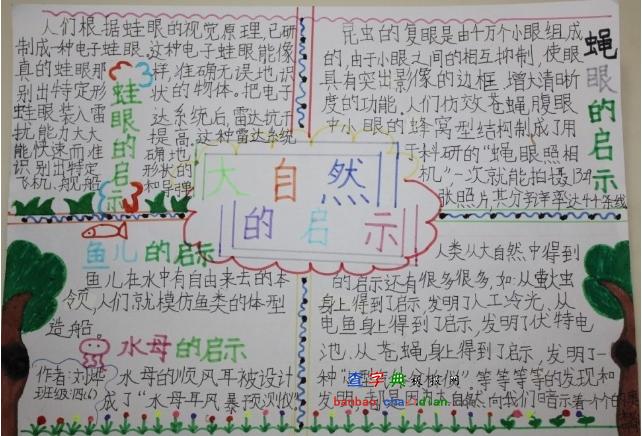 大自然
的启示
蛙眼的启示
人们根据蛙眼的视觉原理,已研
制成一种电子蛙眼.这种电子蛙眼能像
真的蛙眼那样,准确无误地识
别出特定形状的物体。把电子
蛙眼装入雷达系统后,雷达抗干
扰能力大大提高.这种雷达系统
能快速而准确地
识别出特定形状的
飞机.舰船和导弹
蝇眼的启示
昆虫的复眼是由十万个小眼组成
的,由于小眼之间的相互抑制,使眼
具有突出影像的边框,增大清晰
度的功能.人们仿效苍蝇腹眼
中小眼的蜂窝型结构制成了用
于科研的“蝇眼照相
机”一次就能拍摄
张照片,其分辨率达4千条线
鱼儿的启示
鱼儿在水中有自由来去的本
领,人们就模仿鱼类的体型
造船.
水母的启示
作者:刘
班级:四(6)
水母的顺风耳被设计
成了“水母耳风暴预测仪”
人类从大自然中得到
的启示还有很多很多,如:从萤火虫
身上得到了启示,发明了人工冷光,从
电鱼身上得到了启示,发明了伏特电
池.从苍蝇身上得到了启示,发明了一
种“ ”等等等等的发现和
发明,都是因为大自然向我们暗示着一个个的
查字典
baobao.chazidian.com